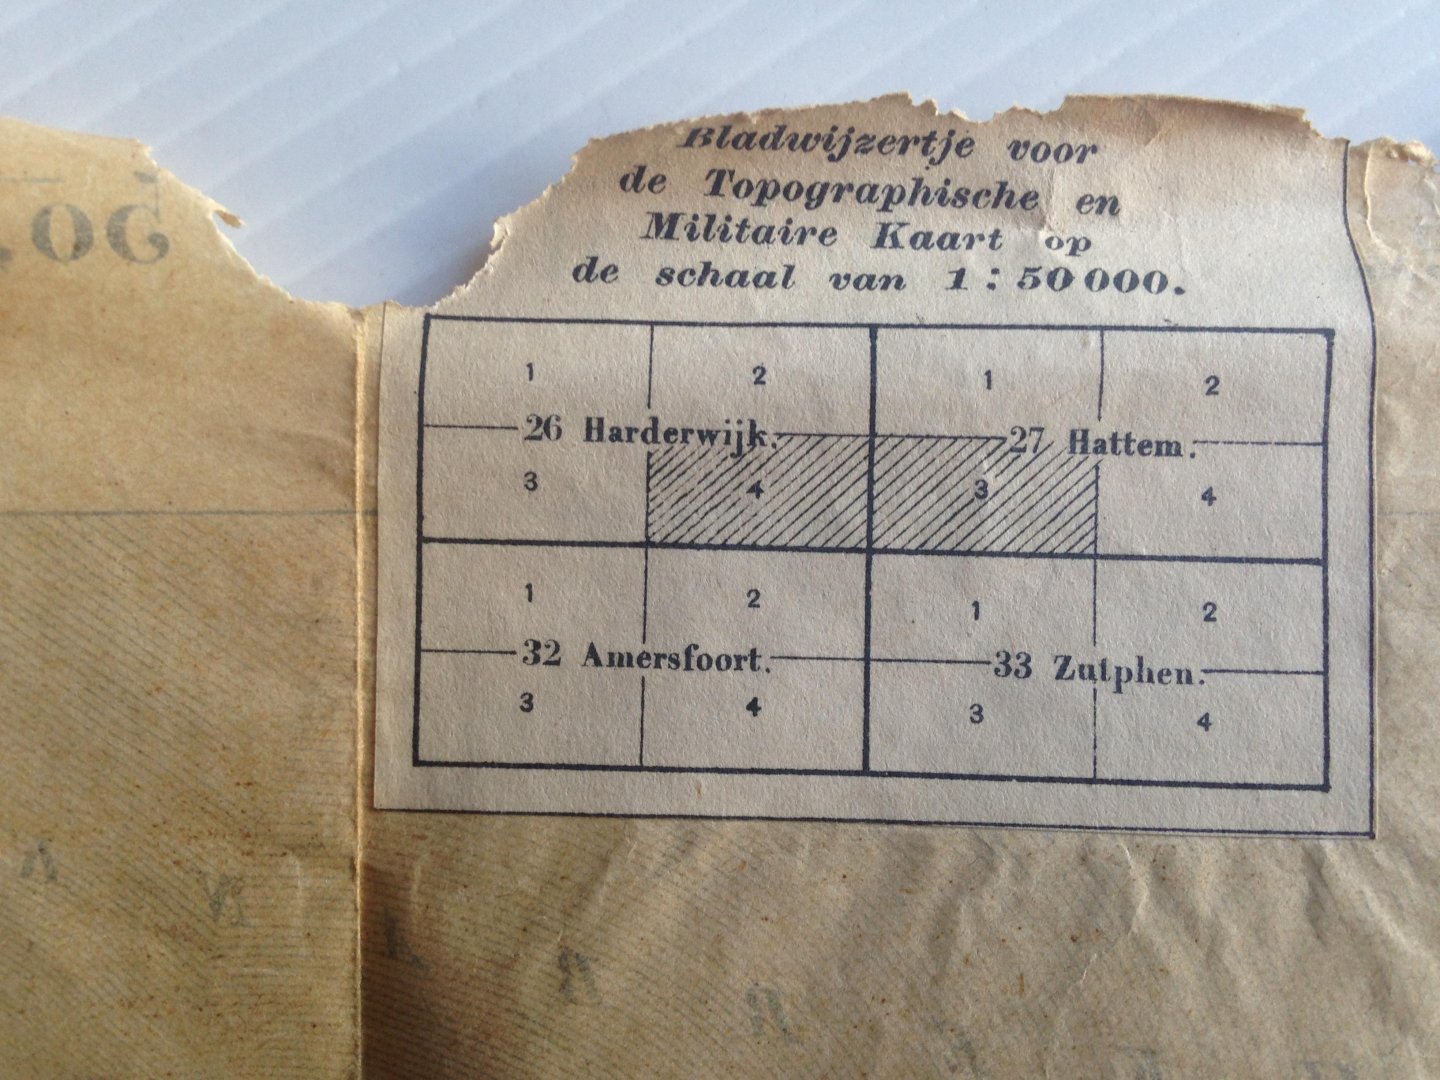 Bladwijzertje voor
de Topographische en
Militaire Kaart op
de schaal van 1:50000.
1 2 1 2
26 Harderwijk. 27 Hattem.
3 4 3 4
1 2 1 2
32 Amersfoort. 33 Zutphen.
3 4 3 4